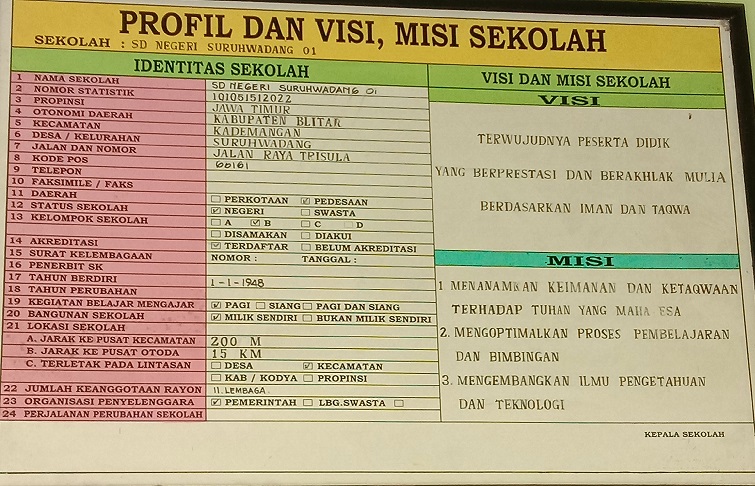 PROFIL DAN VISI, MISI SEKOLAH
SEKOLAH : SD NEGERI SURUHWADANG 01
IDENTITAS SEKOLAH
1 NAMA SEKOLAH SD NEGERI SURUHWADANG 01
2 NOMOR STATISTIK 101051512022
3 PROPINSI JAWA TIMUR
4 OTONOMI DAERAH KABUPATEN BLITAR
5 KECAMATAN KADEMANGAN
6 DESA / KELURAHAN SURUHWADANG
7 JALAN DAN NOMOR JALAN RAYA TRISULA
8 KODE POS 66161
9 TELEPON
10 FAKSIMILE / FAKS
11 DAERAH ☐ PERKOTAAN ☑ PEDESAAN
12 STATUS SEKOLAH ☑ NEGERI ☐ SWASTA
13 KELOMPOK SEKOLAH ☐ A ☑ B ☐ C D
☐ DISAMAKAN ☐ DIAKUI
14 AKREDITASI ☑ TERDAFTAR ☐ BELUM AKREDITASI
15 SURAT KELEMBAGAAN NOMOR : TANGGAL :
16 PENERBIT SK
17 TAHUN BERDIRI 1-1-1948
18 TAHUN PERUBAHAN
19 KEGIATAN BELAJAR MENGAJAR ☑ PAGI ☐ SIANG ☐ PAGI DAN SIANG
20 BANGUNAN SEKOLAH ☑ MILIK SENDIRI ☐ BUKAN MILIK SENDIRI
21 LOKASI SEKOLAH
A. JARAK KE PUSAT KECAMATAN 200 M
B. JARAK KE PUSAT OTODA 15 KM
C. TERLETAK PADA LINTASAN ☐ DESA ☑ KECAMATAN
☐ KAB / KODYA ☐ PROPINSI
22 JUMLAH KEANGGOTAAN RAYON 11. LEMBAGA
23 ORGANISASI PENYELENGGARA ☑ PEMERINTAH ☐ LBG.SWASTA ☐
24 PERJALANAN PERUBAHAN SEKOLAH
VISI DAN MISI SEKOLAH
VISI
TERWUJUDNYA PESERTA DIDIK
YANG BERPRESTASI DAN BERAKHLAK MULIA
BERDASARKAN IMAN DAN TAQWA
MISI
1 MENANAMKAN KEIMANAN DAN KETAQWAAN
TERHADAP TUHAN YANG MAHA ESA
2. MENGOPTIMALKAN PROSES PEMBELAJARAN
DAN BIMBINGAN
3. MENGEMBANGKAN ILMU PENGETAHUAN
DAN TEKNOLOGI
KEPALA SEKOLAH